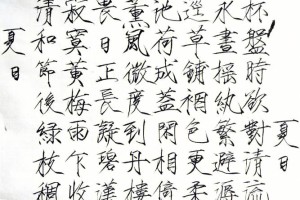 夏日
杯盤時欲對清流
永晝搖紈繁避溽
逕草鋪裀色更柔
池荷成蓋閒相倚
薰風微度到丹樓
畏日正長凝碧漢
寂寞黃梅雨乍收
清和節後綠枝稠
夏日